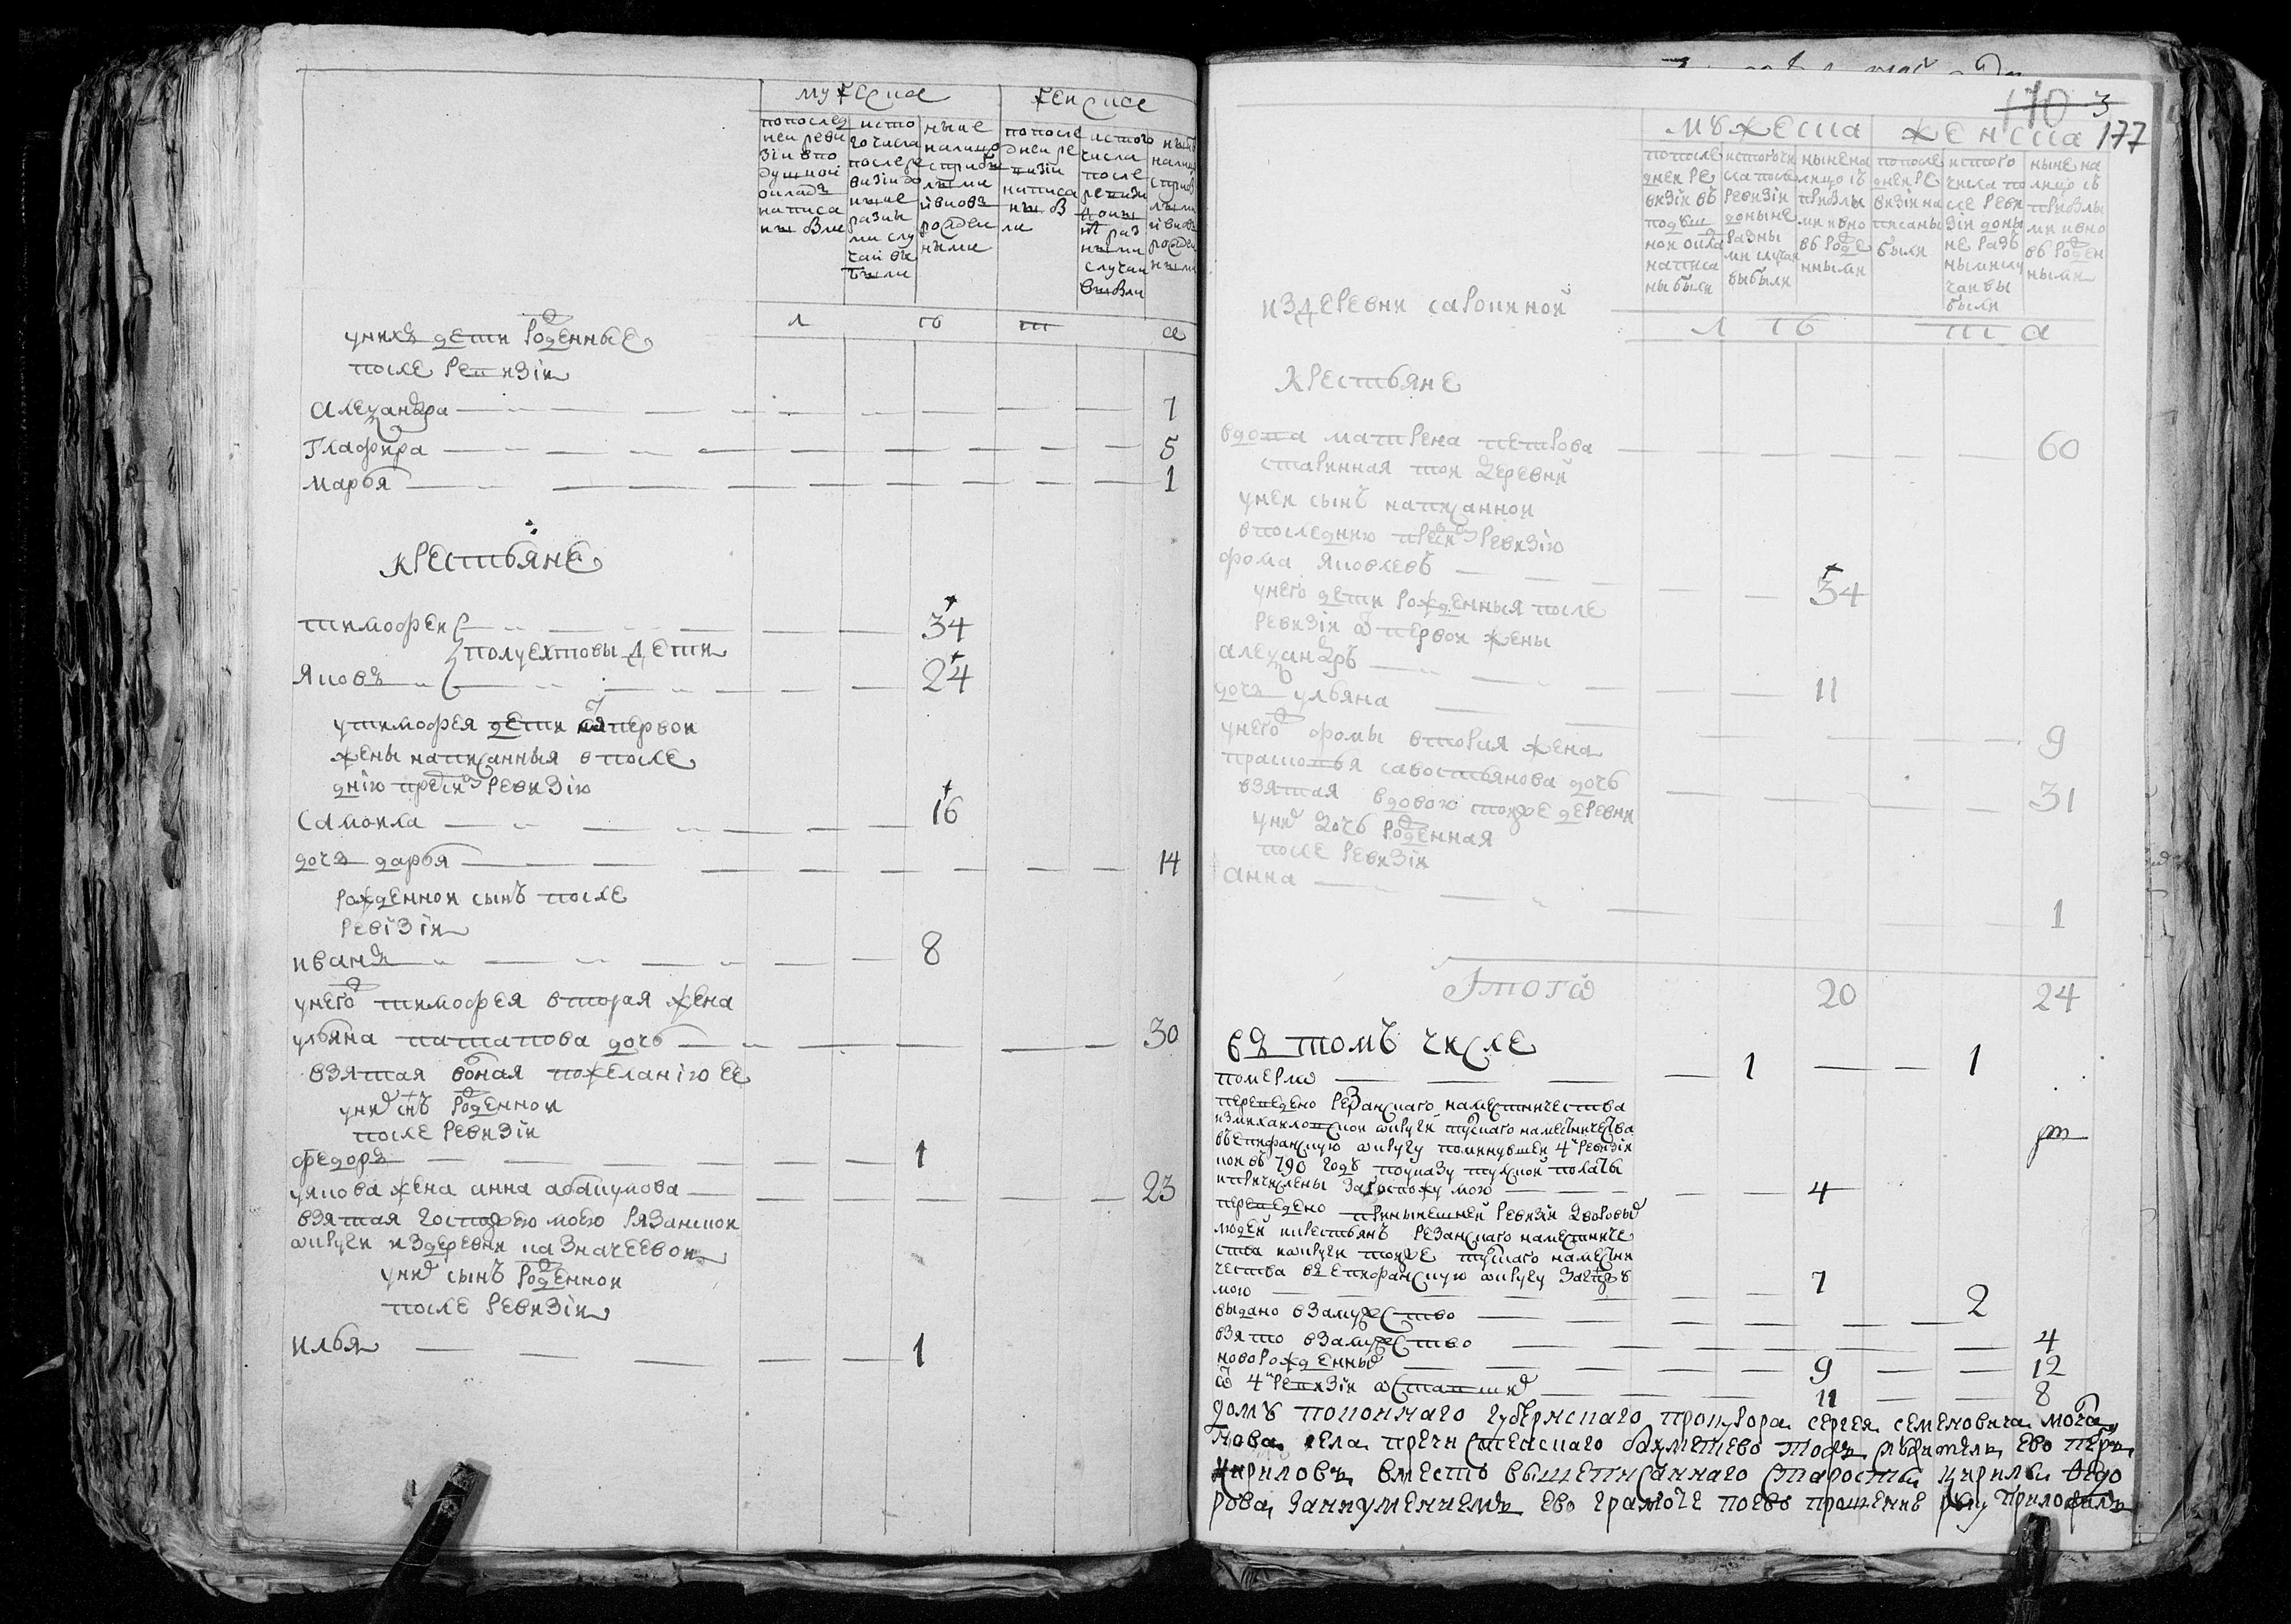 мужеска
женска
попослед
ней реви
зіи впо
душной
окладъ
написа
ны были
исто
го числа
после ре
визіи до
ныне
разны
ми слу
чаи вы
были
ныне
налицо
сприбы
лыми
ивновь
рожден
ными
попосле
дней ре
визіи
написа
ны б
ли
истого
числа
после
ревизи
доны
не раз
ными
случаи
выбыли
уних дети рожденные
после ревизіи
александра 7
Глафира 5
марья 1
крестьяне
тимофеи 34
полуехтовы дети
яковъ 24
утимофея дети отпервои
жены написанныя впосле
днюю пред сим ревизію
самоила 16
дочь дарья 14
рожденнои сынъ после
ревізіи
иванъ 8
унего тимофея вторая жена
ульяна патапова дочь 30
взятая вдная пожеланію ее
у них снъ рожденнои
после ревизіи
федоръ 1
уякова жена анна абакумова 23
взятая госпожею моею рязанскои
округи издеревни казначеевои
у них сынъ рожденнои
после ревизіи
илья 1
170 3
177
мужеска
женска
попосле
дней ре
визіи въ
подуш
нои окла
написа
ны были
истогочи
сла посль
ревизіи
доныне
разны
ми случаи
выбыли
ныне на
лицо съ
прибылы
ми ивно
въ роже
нными
попосле
дней ре
визіи на
писаны
были
истого
числа по
сле реви
зіи доны
не разъ
ными слу
чаи вы
были
ныне на
лицо съ
прибылы
ми ивно
въ рожден
ными
издеревни сарокинои
крестьяне
вдова матрена петрова 60
старинная тои деревни
унеи сынъ написаннои
впоследнюю пред сим ревизію
фома яковлевъ 34
унего дети рожденныя после
ревизіи от первои жены
александръ 11
дочь ульяна 9
унего фомы вторая жена
прасковья савостьянова дочь 31
взятая вдовою тоиже деревни
у них дочь рожденная
после ревизіи
анна 1
Итого 20 24
въ томъ числе
померло 1 1
переведено резанскаго наместничества
измихаиловскои округи тулскаго наместничества
въепифанскую округу поминувшеи 4й ревизіи
кои въ 790 годъ поуказу тулской полаты
ипричислены загоспожу мою 4
переведено принынешней ревизіи дворовых
людеи икрестьянъ резанскаго наместниче
ства иокруги тоиже тулскаго наместни
чества въ епифанскую округу загспжу
мою 7
выдано взамужство 2
взято взамужство 4
новорожденных 9 12
от 4й ревизіи оставших 11 8
домъ покоинаго губернскаго прокурора сергея семеновича
села пречистенскаго ево петръ
кириловъ вместо вышеписаннаго старосты кирилы федо
рова занеумениемъ ево грамоте поево прошение руку приложилъ